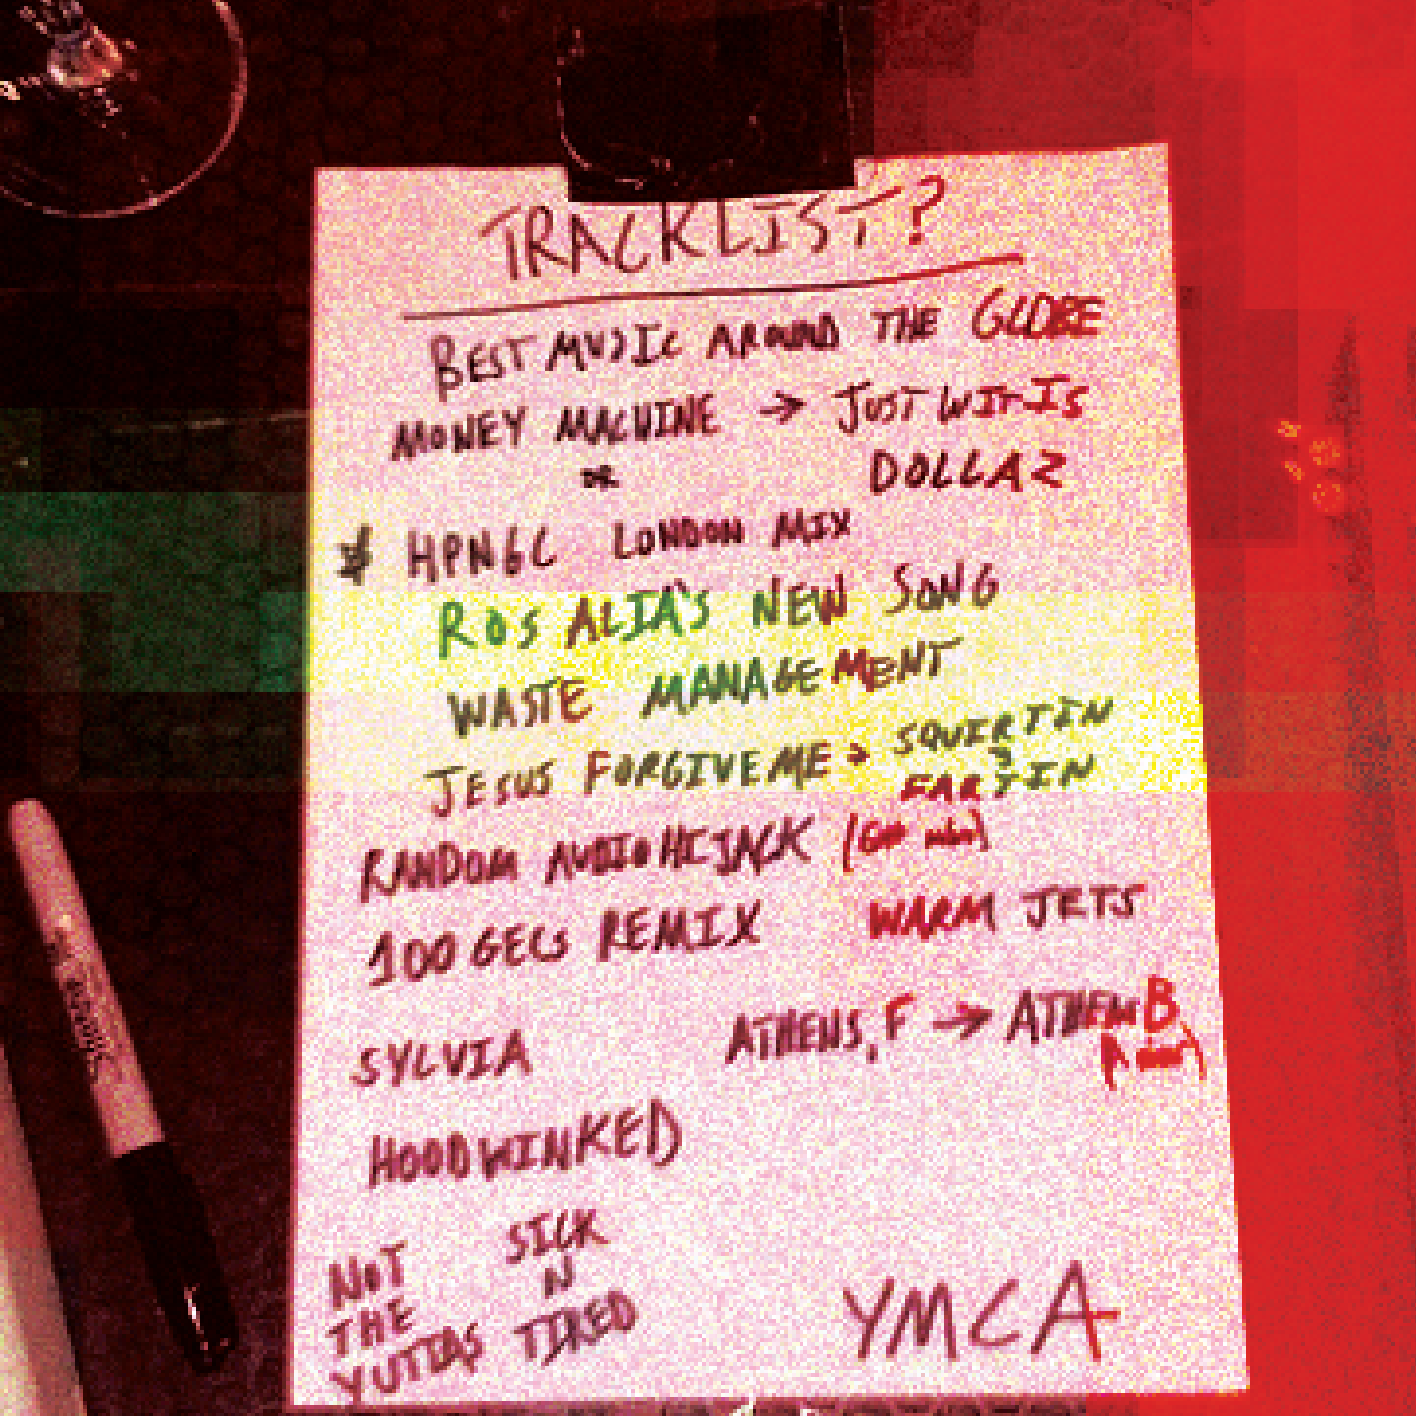 TRACKLIST?
BEST MUSIC AROUND THE GLOBE
MONEY MACHINE → JUST WIT IS
OR DOLLAZ
HPNGC LONDON MIX
ROSALIA'S NEW SONG
WASTE MANAGEMENT
JESUS FORGIVE ME → SQUIRTIN
FARTIN
RANDOM AUDIO HIJACK
100 GECS REMIX WARM JETS
SYLVIA ATHENS, F → ATHENS B
HOODWINKED
NOT THE YUTTAS
SICK N TIRED
YMCA